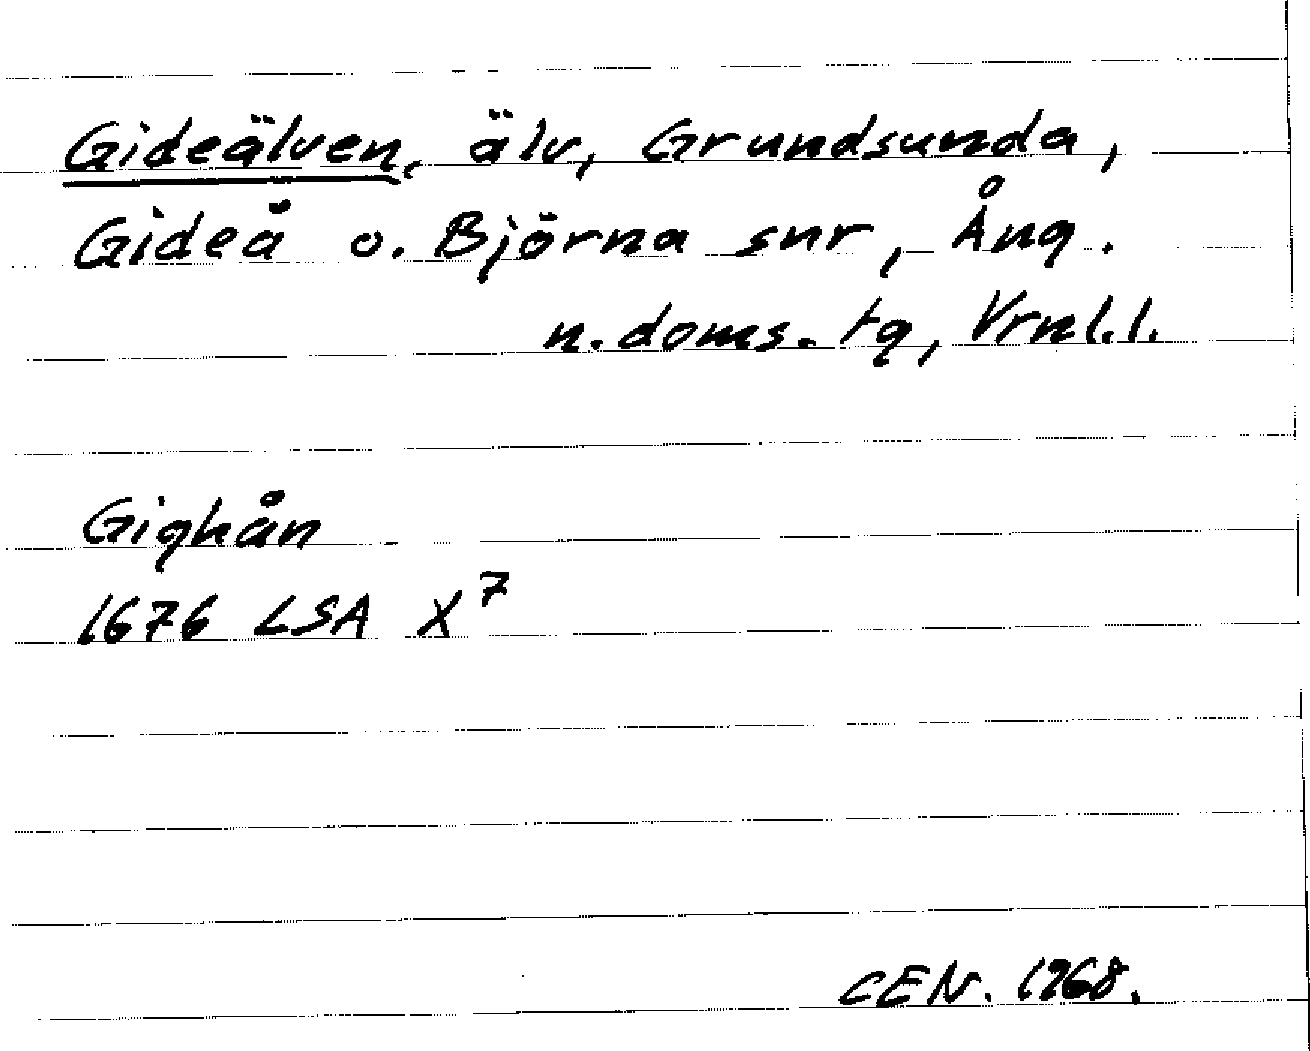 Gideälven, älv, Grundsunda,
Gideå o. Björna snr, Ång.
n. doms. tg, Vrml.l.
Gighån
1676 LSA X7
CEN. 1968.